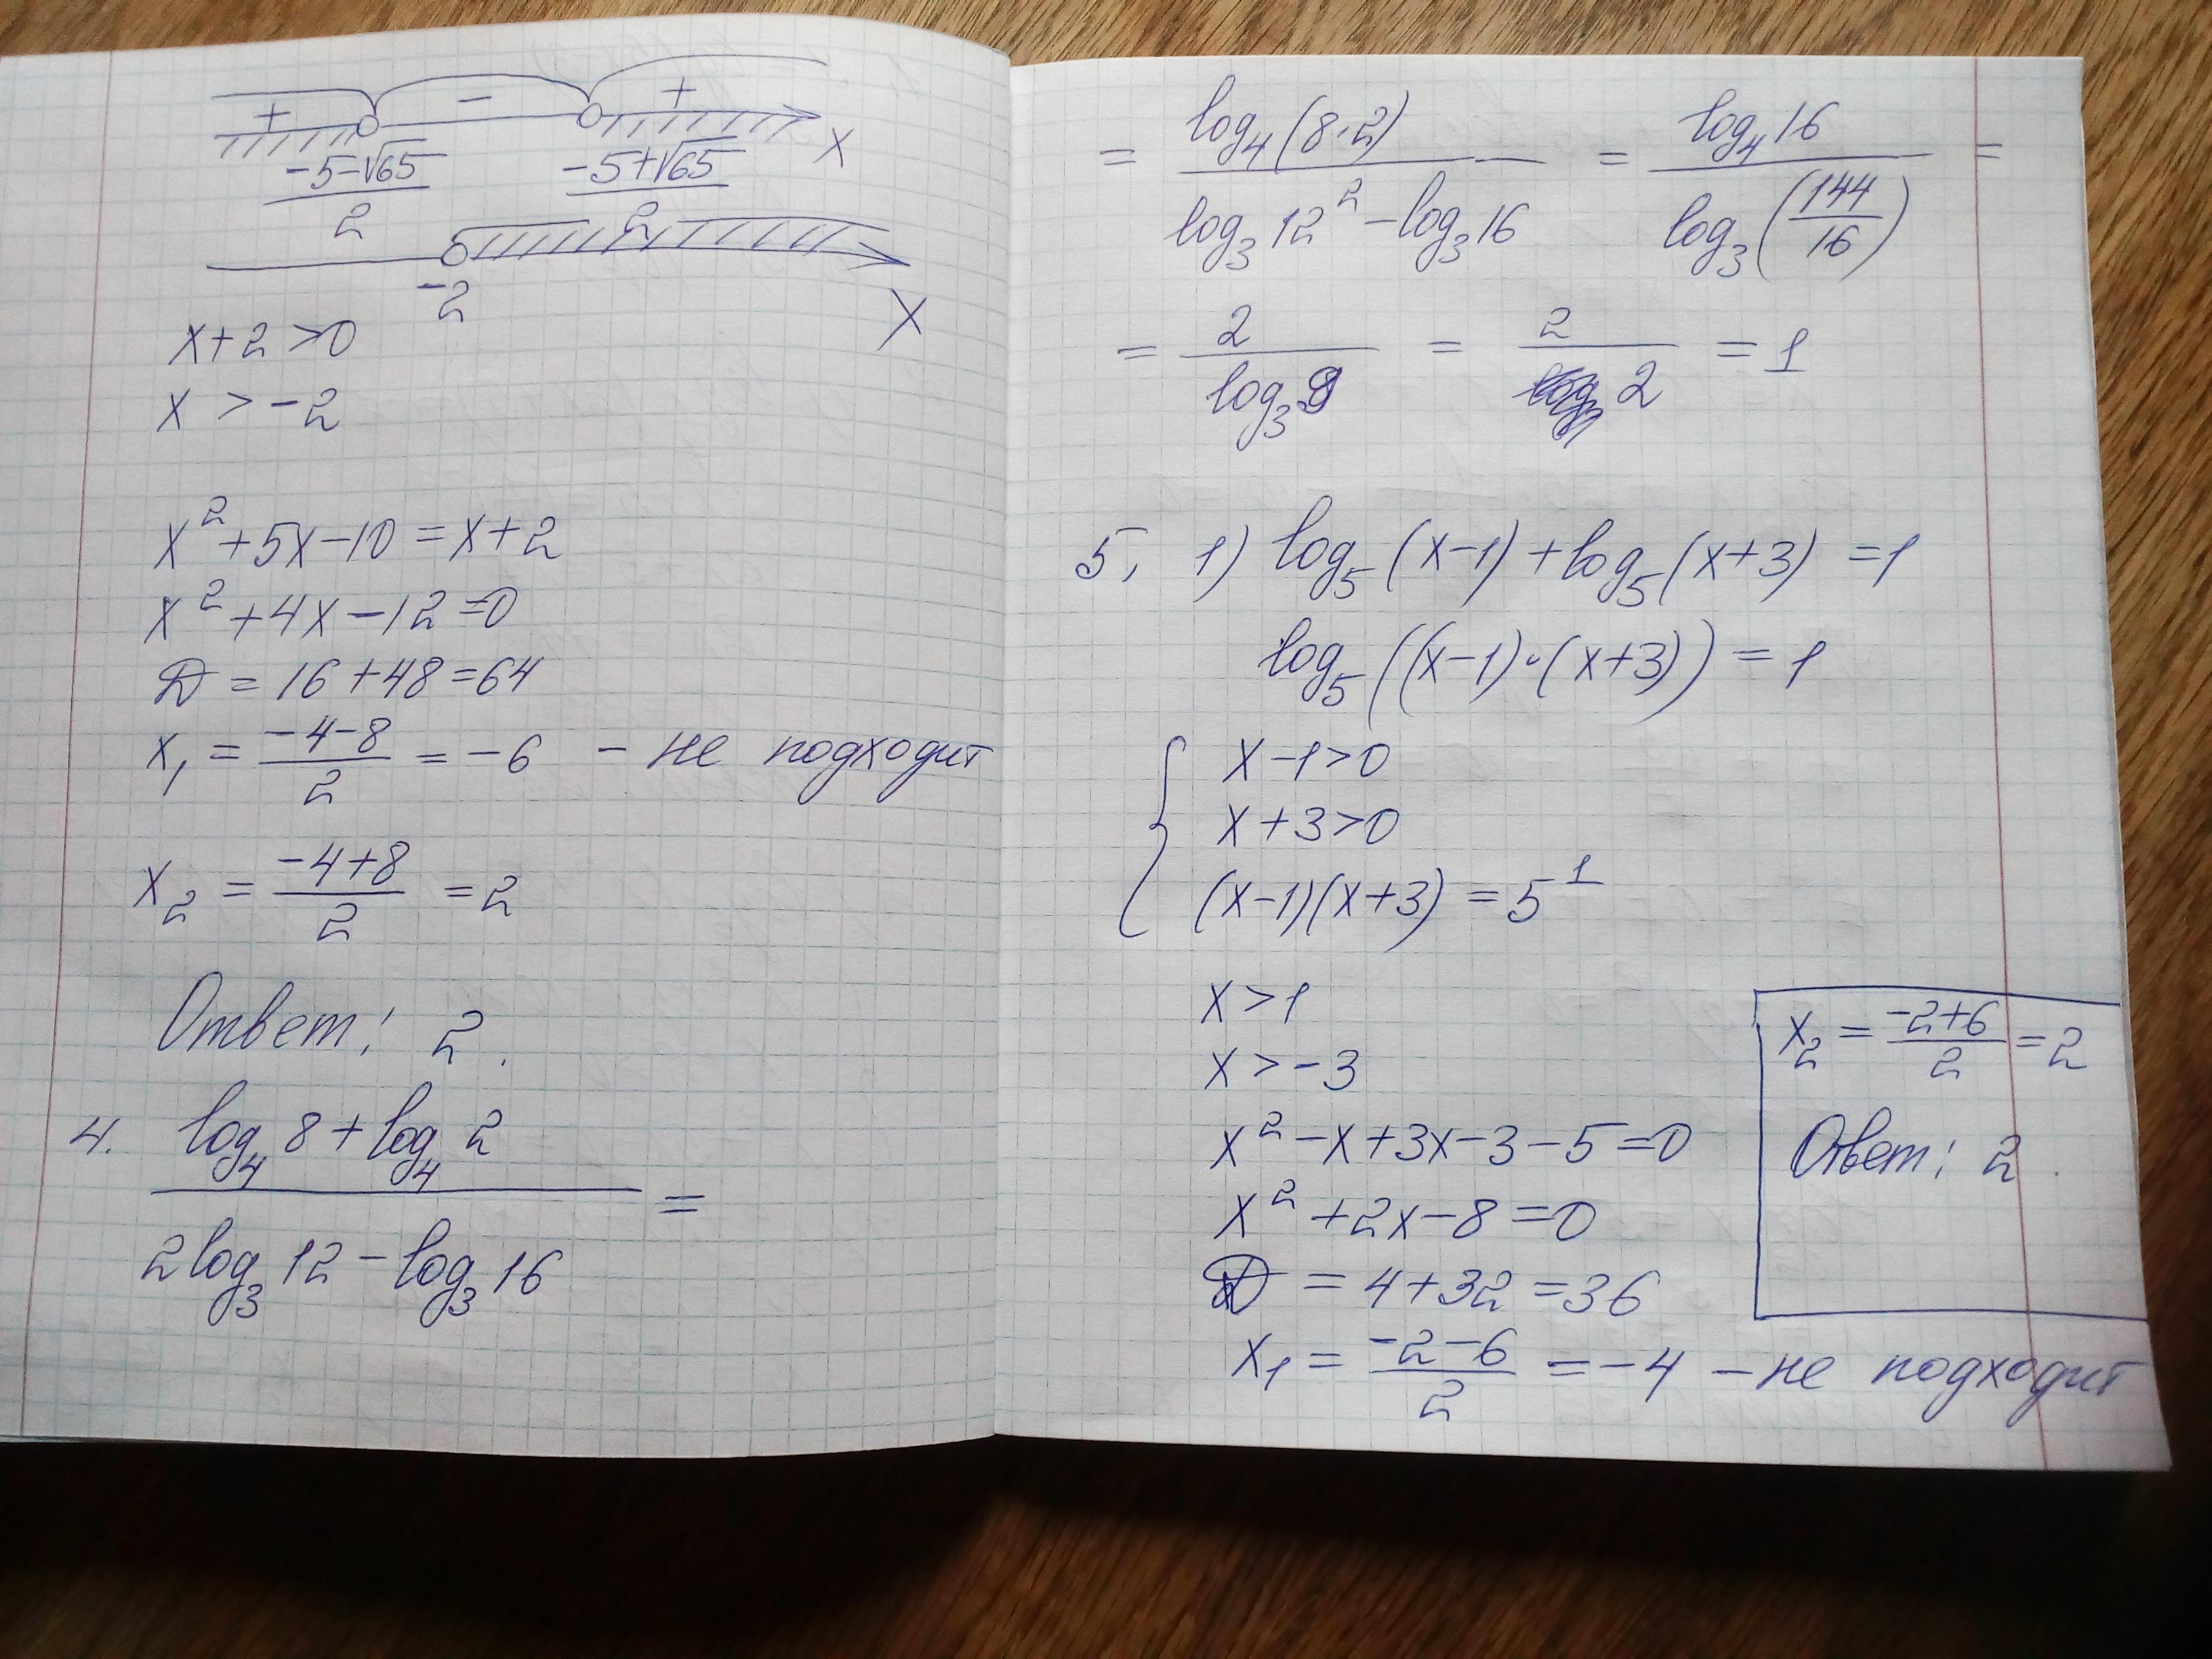 + - + x
(-5-√65)/2 (-5+√65)/2
-2 x
x+2>0
x>-2
x²+5x-10=x+2
x²+4x-12=0
D=16+48=64
x₁=(-4-8)/2=-6 - не подходит
x₂=(-4+8)/2=2
Ответ: 2.
4. (log₄8+log₄2)/(2log₃12-log₃16)=
=(log₄(8·2))/(log₃12²-log₃16)=(log₄16)/(log₃(144/16))=
=2/(log₃9)=2/2=1
5, 1) log₅(x-1)+log₅(x+3)=1
log₅((x-1)·(x+3))=1
{ x-1>0
x+3>0
(x-1)(x+3)=5¹
x>1
x>-3
x²-x+3x-3-5=0
x²+2x-8=0
D=4+32=36
x₁=(-2-6)/2=-4 - не подходит
x₂=(-2+6)/2=2
Ответ: 2.